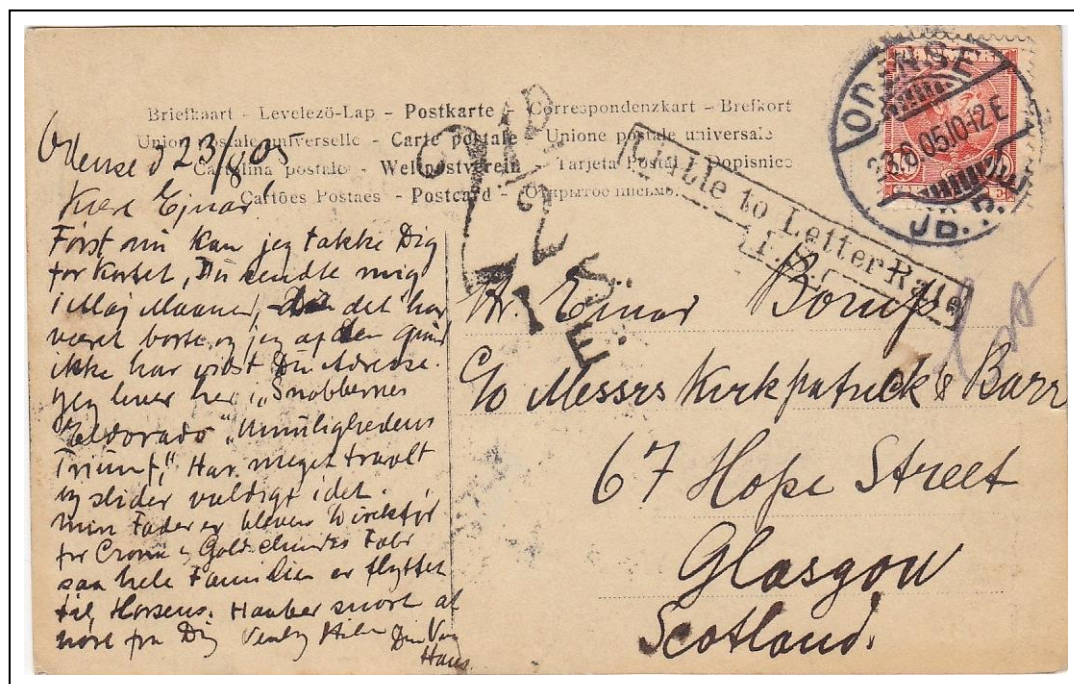 Briefkaart - Levelezö-Lap - Postkarte - Correspondenzkart - Brefkort
Union postale universelle - Carte postale - Unione postale universale
Cartolina postale - Weltpostverein - Tarjeta Postal - Dopisnice
Cartões Postaes - Postcard - Открытое письмо.
ODENSE
23.8.05 10-12 E
JB.P.
Liable to Letter Rate
Odense d 23/8 05
Kære Ejnar
Först nu kan jeg takke Dig
for Kortet, Du sendte mig
i Maj Maaned, det har
været borte, og jeg af den grund
ikke har vidst Din Adresse.
Jeg lever her i „Snobbernes
Eldorado" „Umulighedens
Triumf". Har meget travlt
og slider vældigt i det.
Min Fader er bleven Direktør
for Crome & Goldschmidts Fabr
saa hele Familien er flyttet
til Horsens. Haaber snart at
høre fra Dig Venlig Hilsen Din Ven
Hans.
Hr. Ejnar Borup
c/o Messrs Kirkpatrick & Barr
67 Hope Street
Glasgow
Scotland.